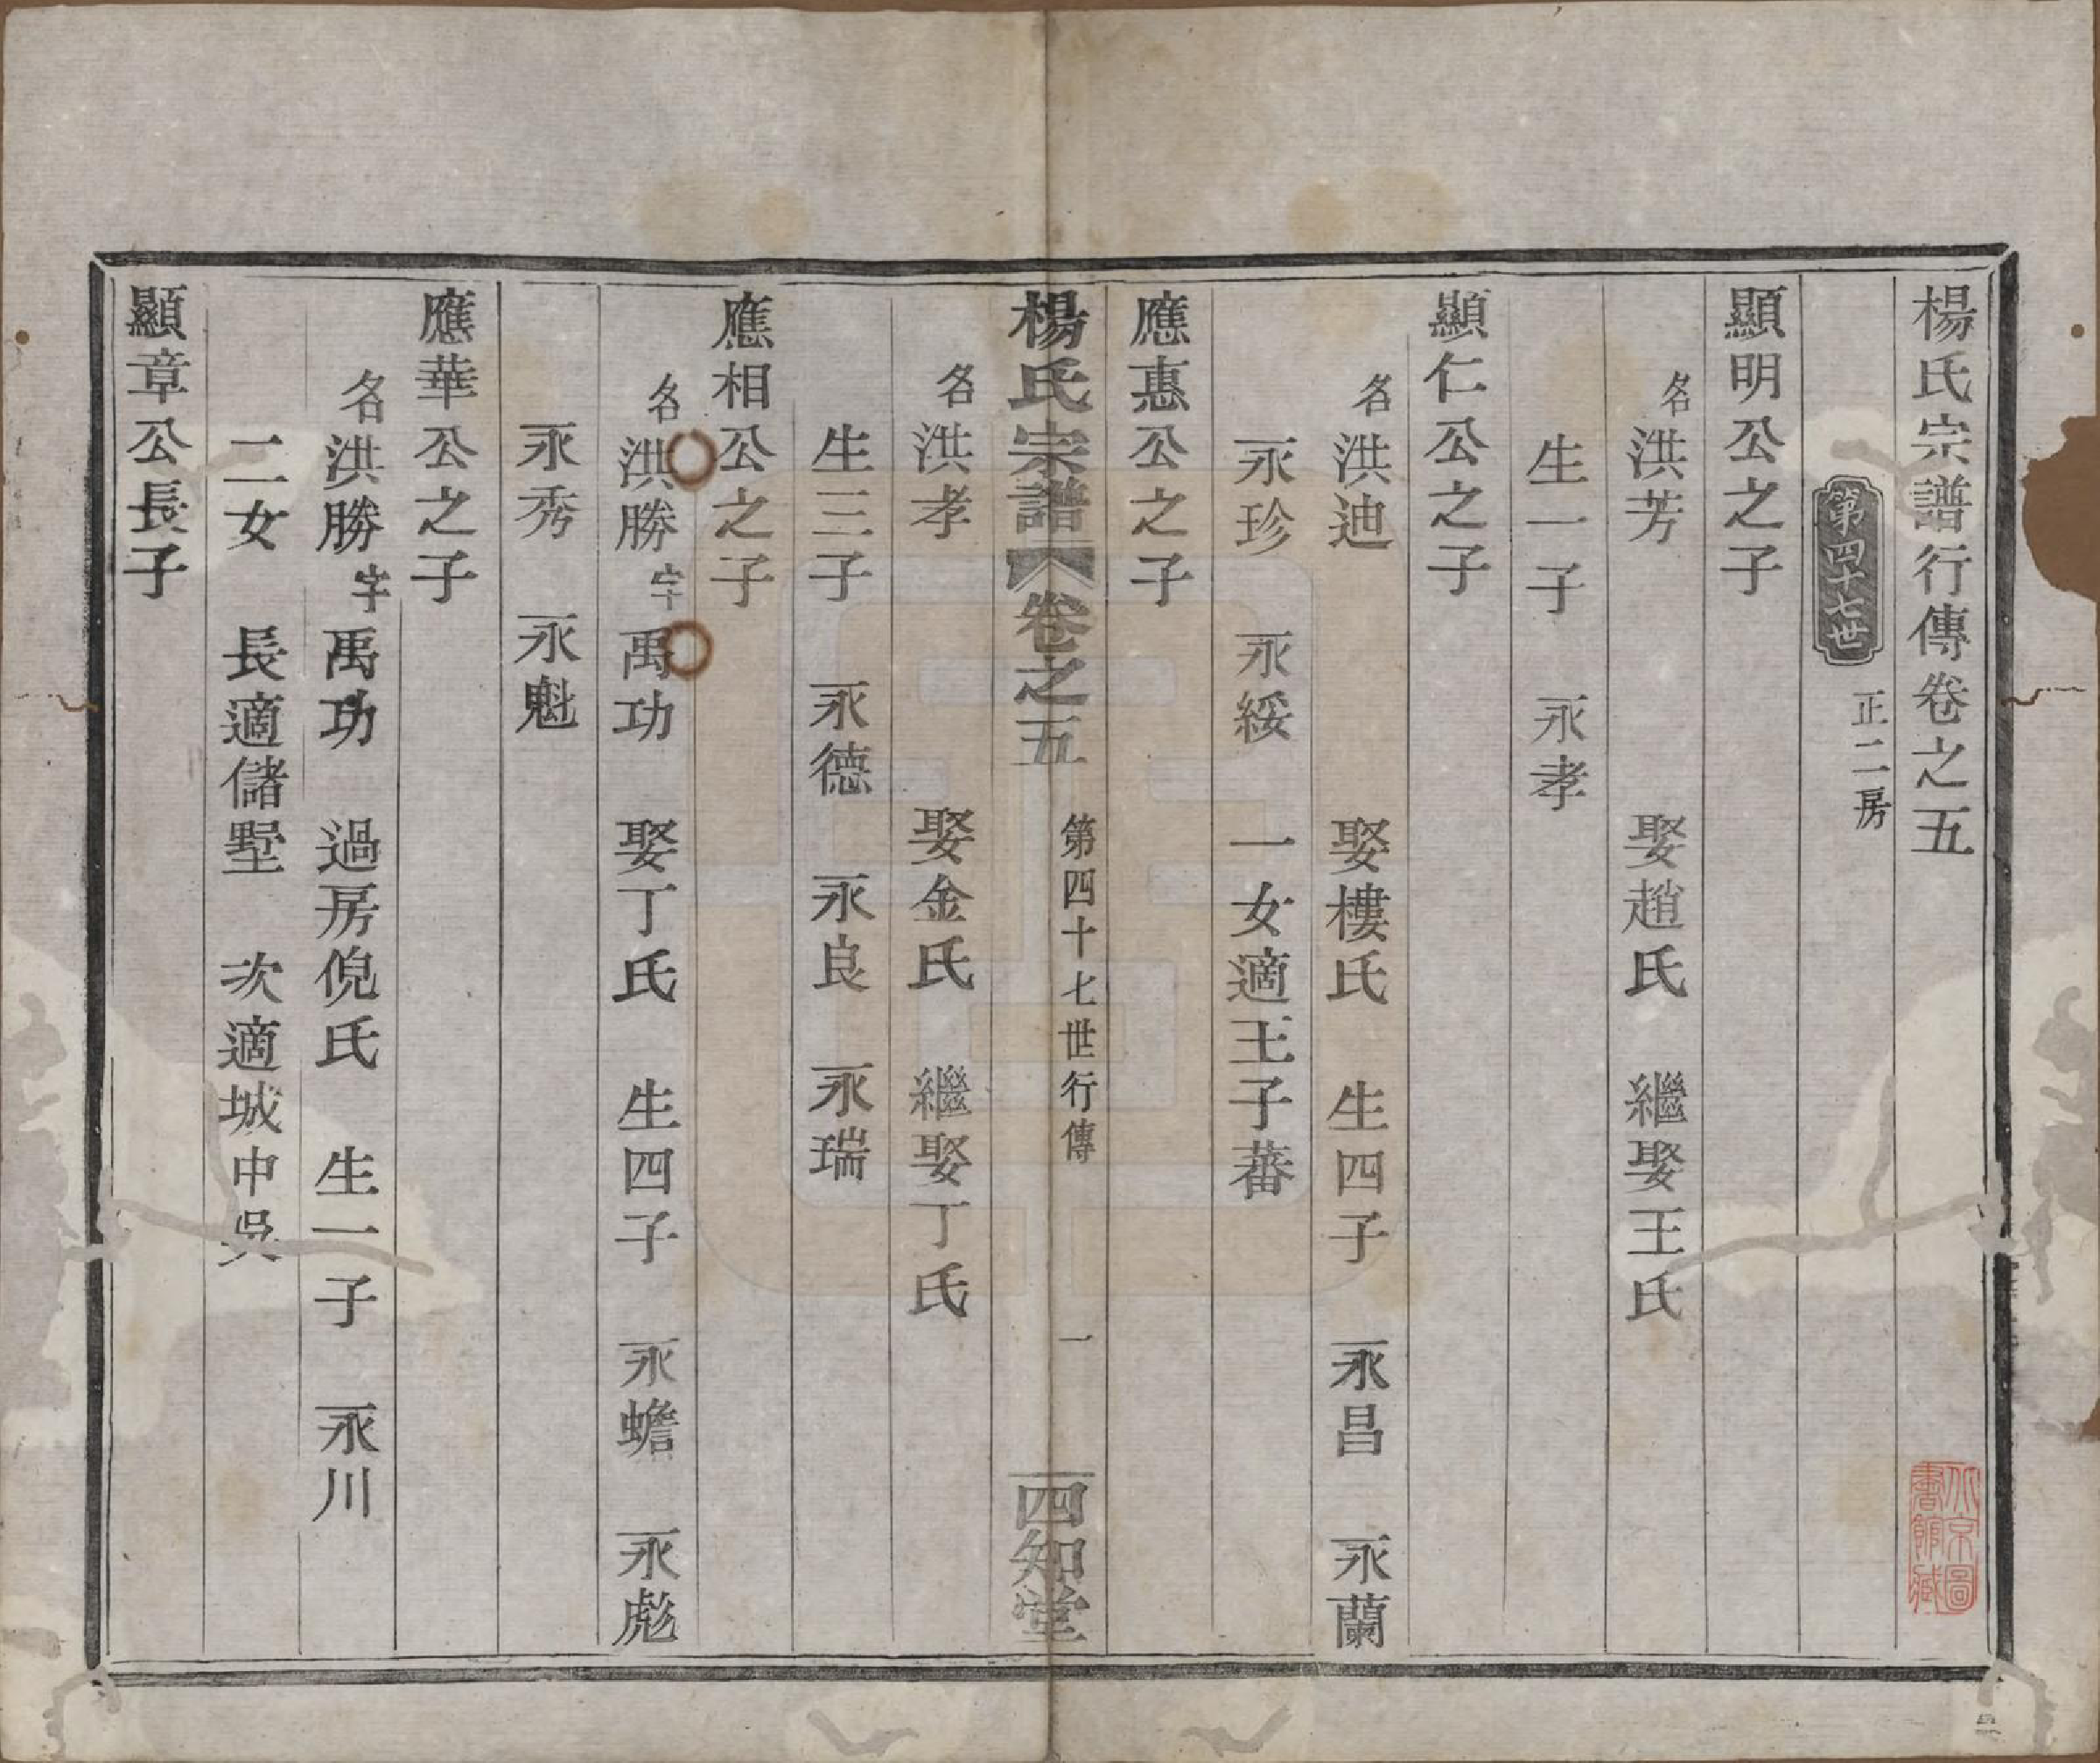 楊氏宗譜行傳卷之五
第四十七世 正二房
顯明公之子
名洪芳 娶趙氏 繼娶王氏
生一子 永孝
顯仁公之子
名洪迪 娶樓氏 生四子 永昌 永蘭
永珍 永綏 一女適王子蕃
應惠公之子
楊氏宗譜 卷之五 第四十七世行傳 一 四知堂
名洪孝 娶金氏 繼娶丁氏
生三子 永德 永良 永瑞
應相公之子
名洪勝字禹功 娶丁氏 生四子 永蟾 永彪
永秀 永魁
應華公之子
名洪勝字禹功 過房倪氏 生一子 永川
二女 長適儲墅 次適城中吳
顯章公長子
北京圖
書館藏